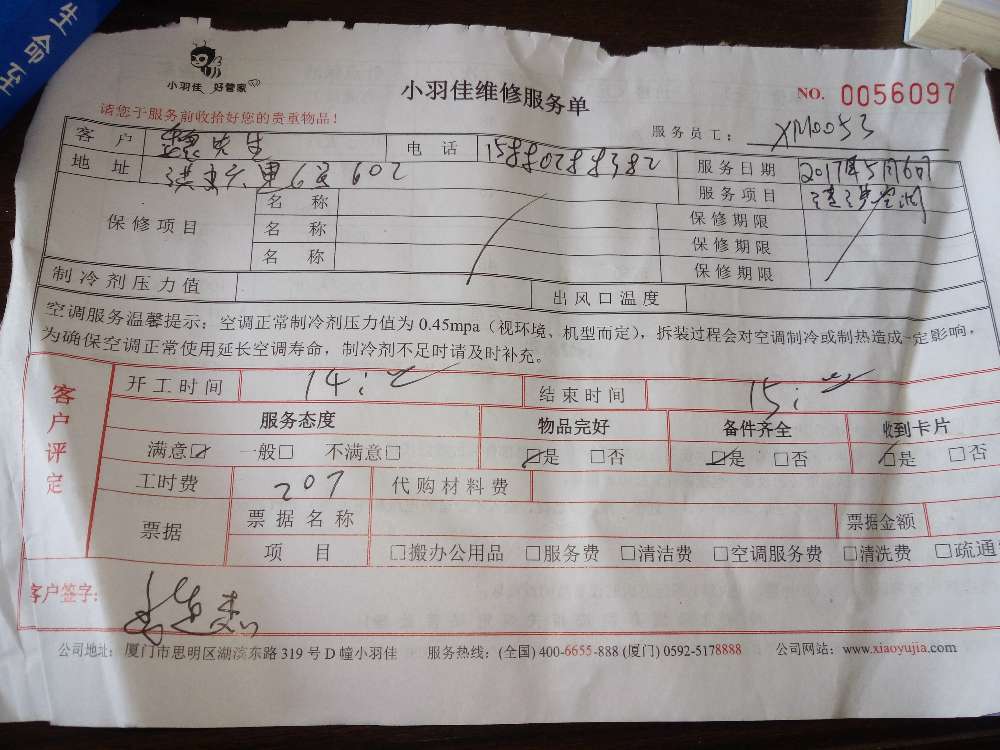 生命至
小羽佳 好管家
小羽佳维修服务单
NO. 0056097
请您于服务前收拾好您的贵重物品!
服务员工: XM0053
客户 先生 电话 服务日期 2017年5月6日
地址 602 服务项目 清洗空调
保修项目 名称 保修期限
名称 保修期限
名称 保修期限
制冷剂压力值 出风口温度
空调服务温馨提示:空调正常制冷剂压力值为0.45mpa(视环境、机型而定),拆装过程会对空调制冷或制热造成一定影响,
为确保空调正常使用延长空调寿命,制冷剂不足时请及时补充。
客户评定
开工时间 14: 结束时间 15:
服务态度 物品完好 备件齐全 收到卡片
满意☑ 一般□ 不满意□ ☑是 □否 ☑是 □否 ☑是 □否
工时费 207 代购材料费
票据 票据名称 票据金额
项目 □搬办公用品 □服务费 □清洁费 □空调服务费 □清洗费 □疏通
客户签字:
公司地址: 厦门市思明区湖滨东路319号D幢小羽佳 服务热线: (全国) 400-6655-888 (厦门) 0592-5178888 公司网站: www.xiaoyujia.com